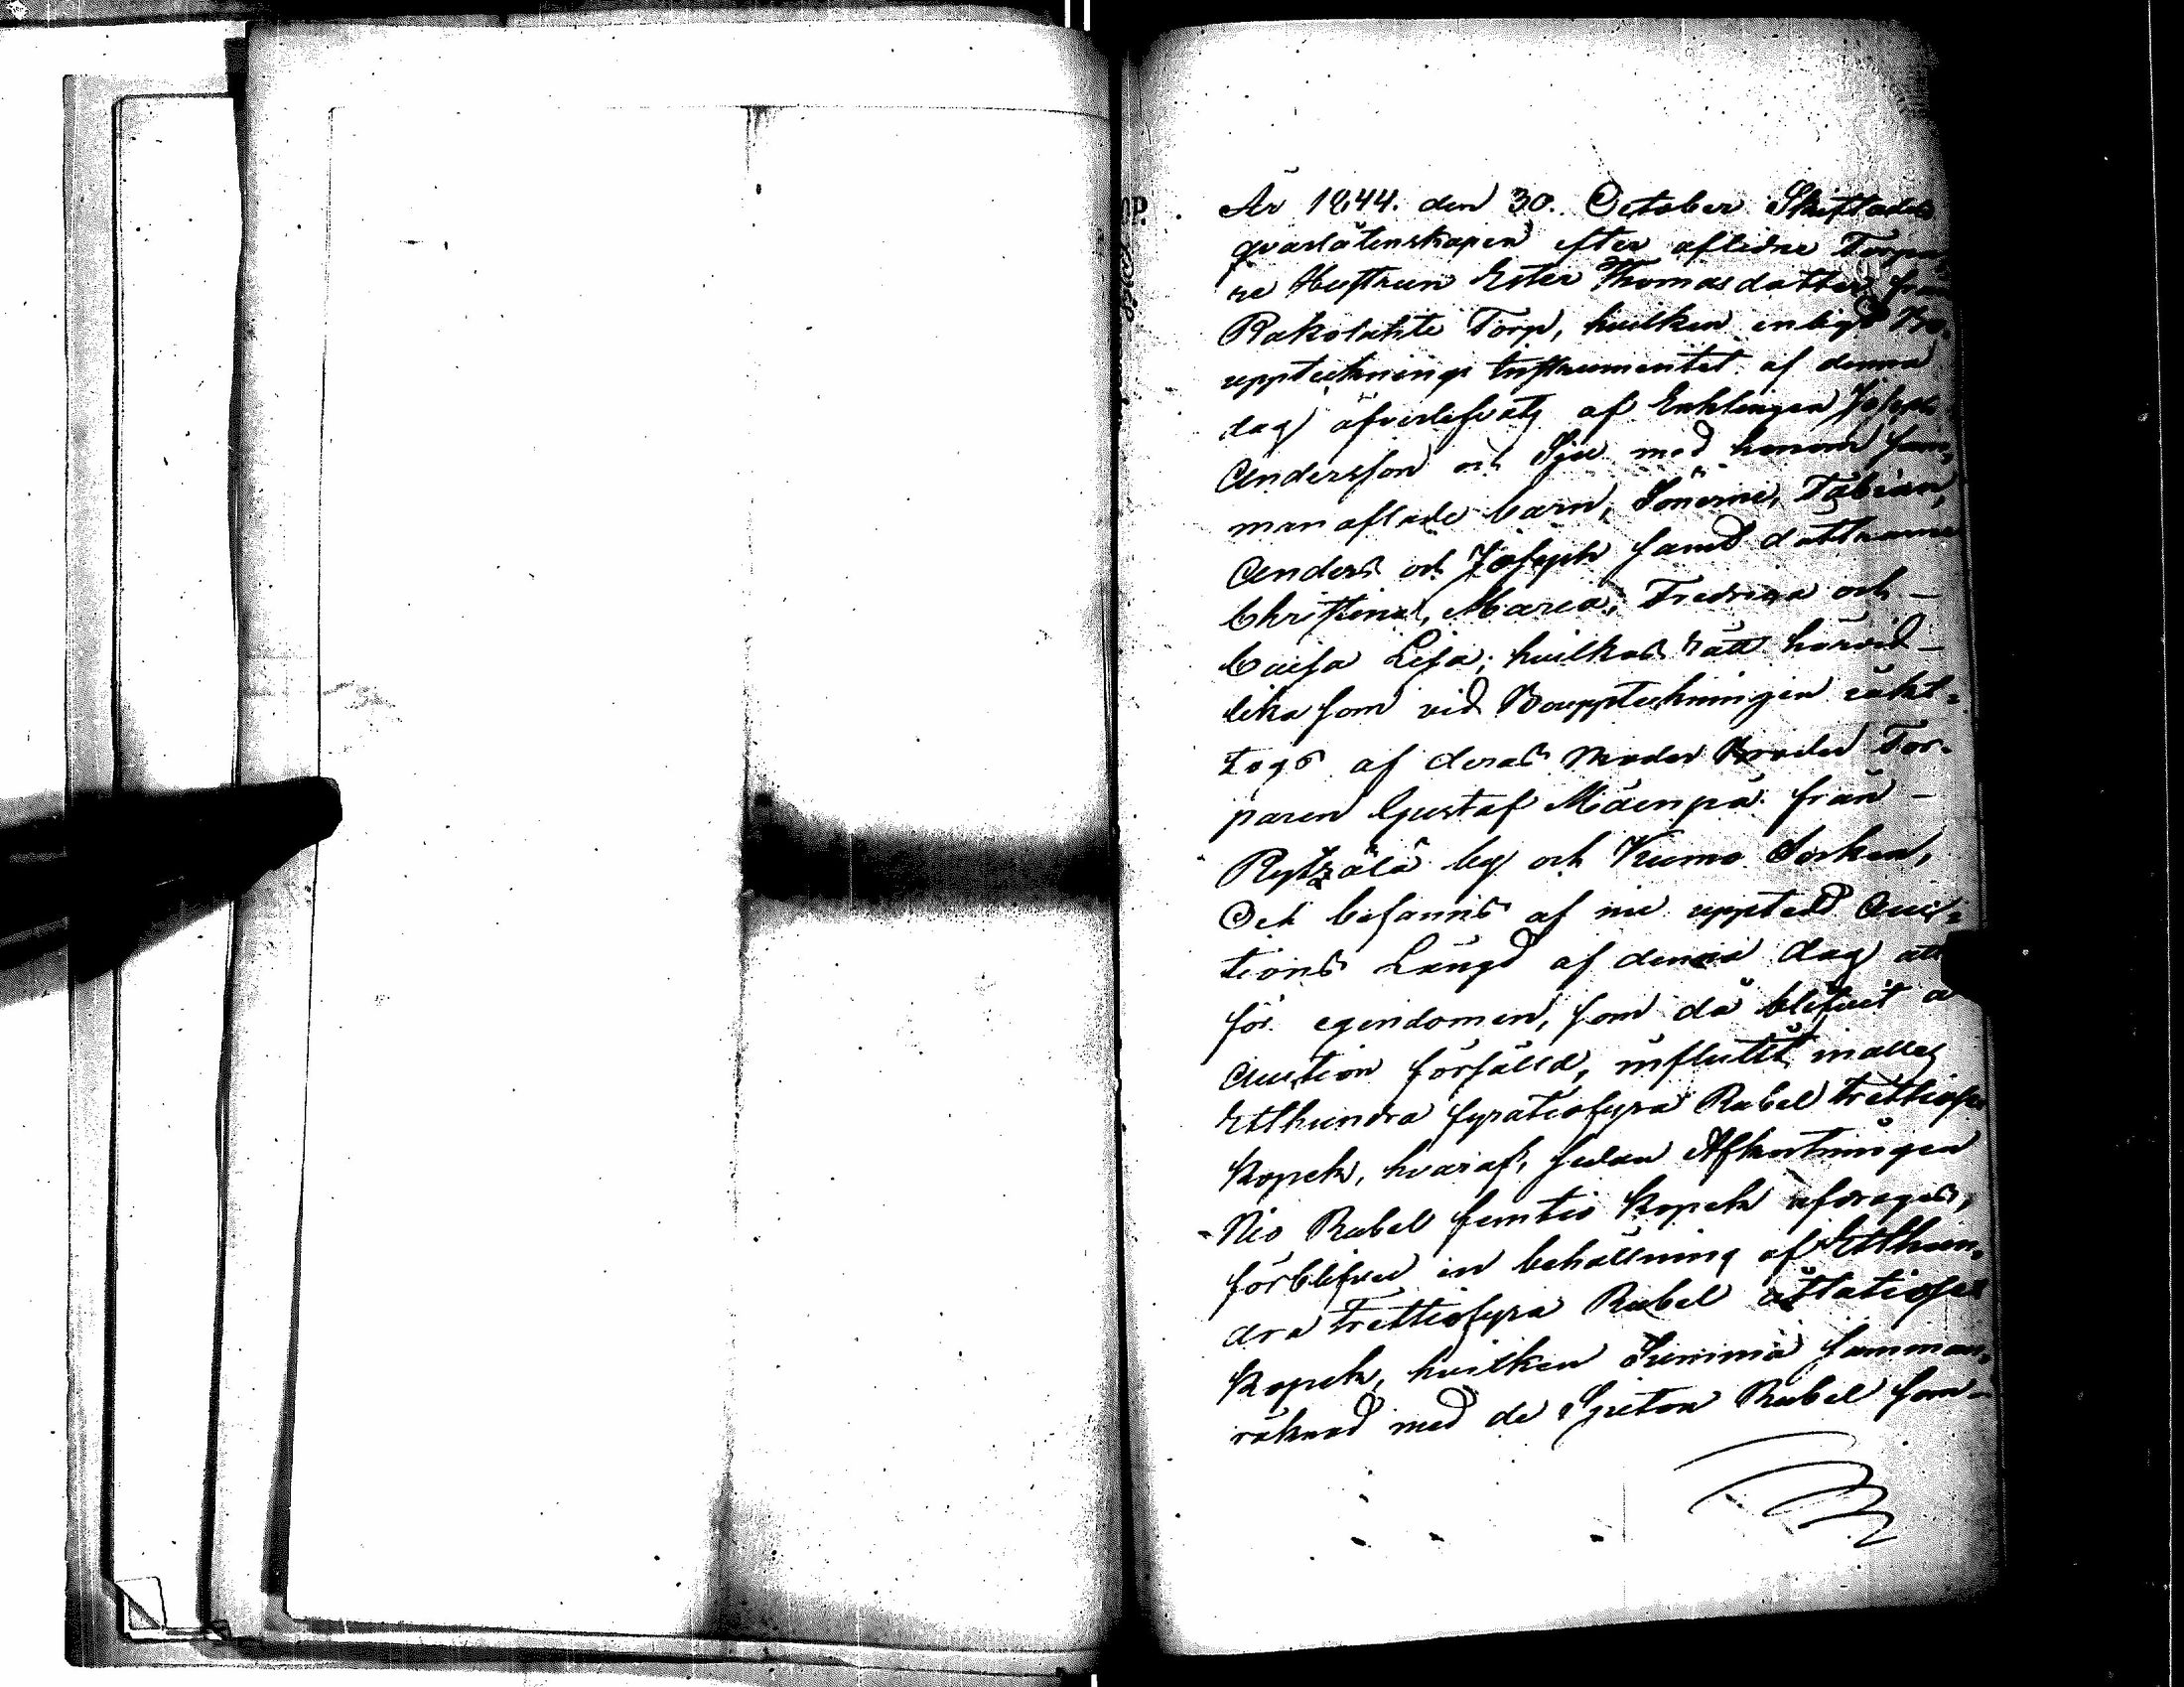 År 1844. den 30. October Skiftades
qvarlåtenskapen efter aflidne Torpa,
re Hustrun Ester Thomasdotter från
Rakolahte Torp, hvilken enligt Bo,
upptecknings Instrumentet af denna
dag öfverlefvats af Enklingen Joseph
Andersson och Sju med honom sam,
man aflade barn, Sönerne, Fabian,
Anders och Joseph samt döttrarne
Christina, Maria, Fredrica och –
Caisa Lisa; hvilkas rätt härvid –
lika som vid Bouppteckningen iakt-
togs af deras Moder Broder Tor-
paren Gustaf Mäenpä från –
Rytzälä by och Kumo Socken,
Och befanns af nu uppted Auc-
tions Längd af denna dag att
för egendomen, som då blifvit å
Auction försålld, influtit inalles
Etthundra fyratiofyra Rubel trettiosex
Kopek, hvaraf, sedan Afkortningen
Nio Rubel femtio Kopek afdrages,
förblifver en behållning af Etthun,
dra Trettiofyra Rubel åttatiosex
Kopek, hvilken Summa samman,
räknad med de Sjutton Rubel som –